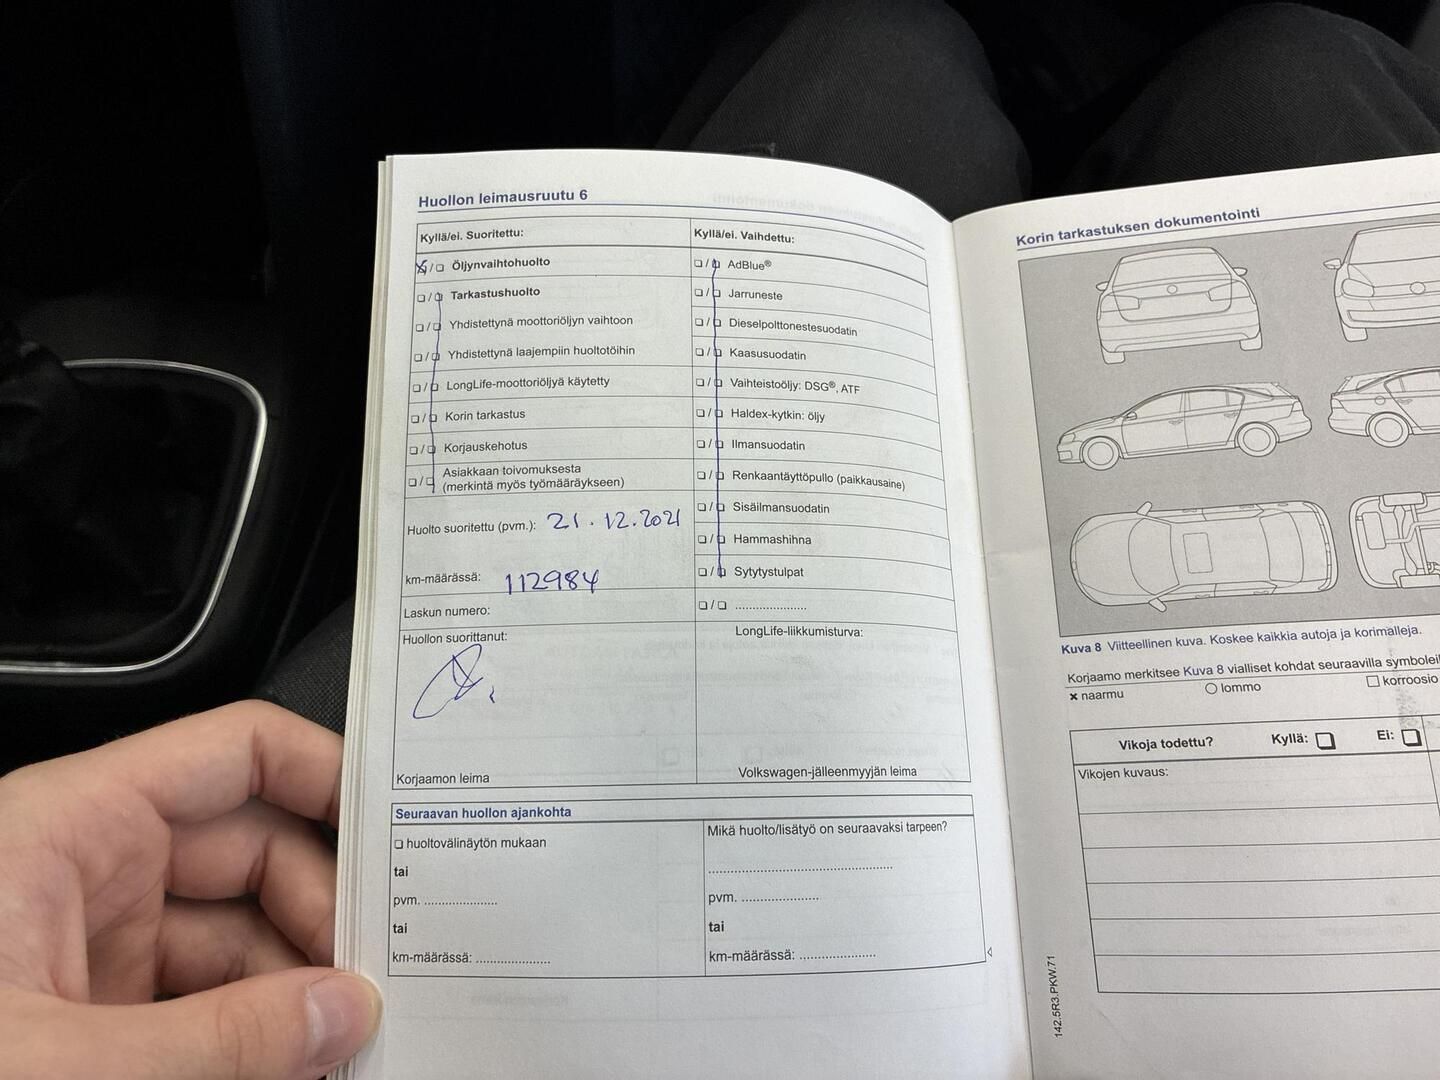 Huollon leimausruutu 6
Kyllä/ei. Suoritettu:
Öljynvaihtohuolto
Tarkastushuolto
Yhdistettynä moottoriöljyn vaihtoon
Yhdistettynä laajempiin huoltotöihin
LongLife-moottoriöljyä käytetty
Korin tarkastus
Korjauskehotus
Asiakkaan toivomuksesta
(merkintä myös työmääräykseen)
Huolto suoritettu (pvm.): 21.12.2021
km-määrässä: 112984
Laskun numero:
Huollon suorittanut:
Korjaamon leima
Kyllä/ei. Vaihdettu:
AdBlue®
Jarruneste
Dieselpolttonestesuodatin
Kaasusuodatin
Vaihteistoöljy: DSG®, ATF
Haldex-kytkin: öljy
Ilmansuodatin
Renkaantäyttöpullo (paikkausaine)
Sisäilmansuodatin
Hammashihna
Sytytystulpat
LongLife-liikkumisturva:
Volkswagen-jälleenmyyjän leima
Seuraavan huollon ajankohta
huoltovälinäytön mukaan
tai
pvm. ....................
tai
km-määrässä: ....................
Mikä huolto/lisätyö on seuraavaksi tarpeen?
pvm. ....................
tai
km-määrässä: ....................
Korin tarkastuksen dokumentointi
Kuva 8 Viitteellinen kuva. Koskee kaikkia autoja ja korimalleja.
Korjaamo merkitsee Kuva 8 vialliset kohdat seuraavilla
naarmu
lommo
korroosio
Vikoja todettu? Kyllä: Ei:
Vikojen kuvaus:
142.5R3.PKW.71